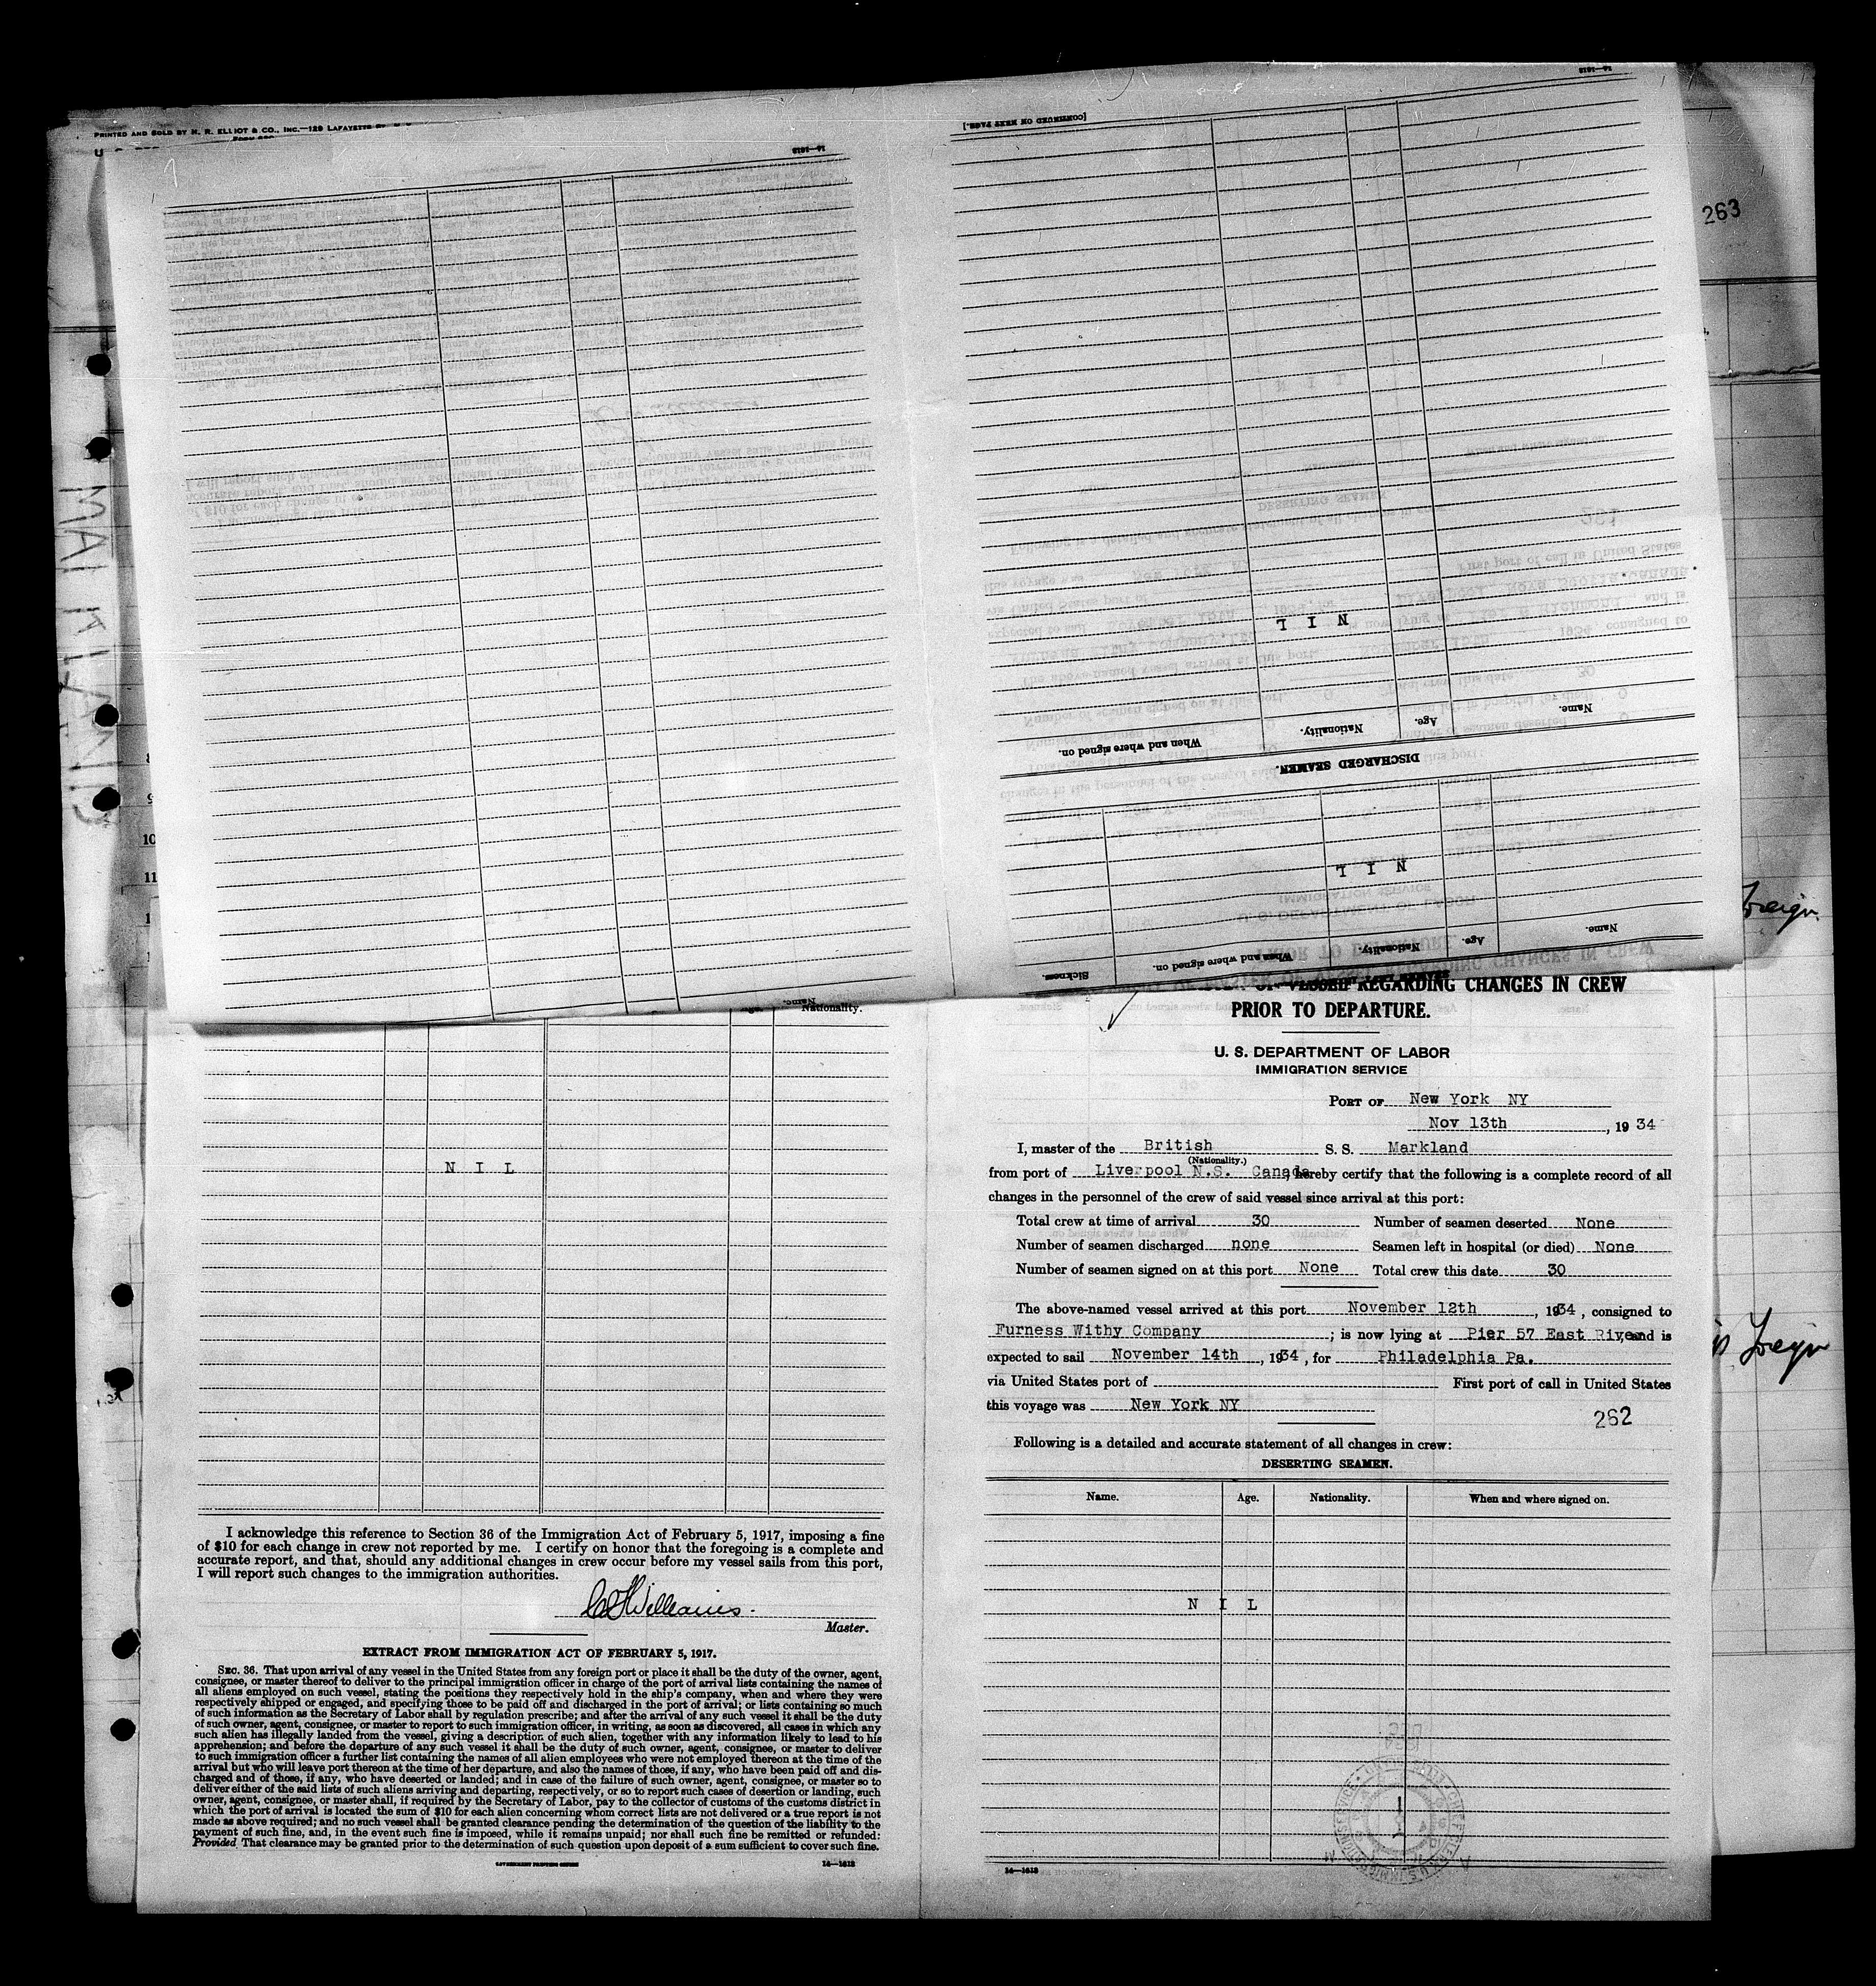 PRINTED AND SOLD BY N. R. ELLIOT & CO., INC.—129 LAFAYETTE
14—1613
[CONTINUED ON NEXT PAGE.]
14—1613
263
MARKLAND
N I L
Name. Age. Nationality. When and where signed on.
DISCHARGED SEAMEN.
N I L
Name. Age. Nationality. When and where signed on. Sickness.
Name.
Foreign
Foreign
10
11
Nationality.
N I L
I acknowledge this reference to Section 36 of the Immigration Act of February 5, 1917, imposing a fine
of $10 for each change in crew not reported by me. I certify on honor that the foregoing is a complete and
accurate report, and that, should any additional changes in crew occur before my vessel sails from this port,
I will report such changes to the immigration authorities.
Williams.
Master.
EXTRACT FROM IMMIGRATION ACT OF FEBRUARY 5, 1917.
SEC. 36. That upon arrival of any vessel in the United States from any foreign port or place it shall be the duty of the owner, agent,
consignee, or master thereof to deliver to the principal immigration officer in charge of the port of arrival lists containing the names of
all aliens employed on such vessel, stating the positions they respectively hold in the ship's company, when and where they were
respectively shipped or engaged, and specifying those to be paid off and discharged in the port of arrival; or lists containing so much
of such information as the Secretary of Labor shall by regulation prescribe; and after the arrival of any such vessel it shall be the duty
of such owner, agent, consignee, or master to report to such immigration officer, in writing, as soon as discovered, all cases in which any
such alien has illegally landed from the vessel, giving a description of such alien, together with any information likely to lead to his
apprehension; and before the departure of any such vessel it shall be the duty of such owner, agent, consignee, or master to deliver
to such immigration officer a further list containing the names of all alien employees who were not employed thereon at the time of the
arrival but who will leave port thereon at the time of her departure, and also the names of those, if any, who have been paid off and dis-
charged and of those, if any, who have deserted or landed; and in case of the failure of such owner, agent, consignee, or master so to
deliver either of the said lists of such aliens arriving and departing, respectively, or so to report such cases of desertion or landing, such
owner, agent, consignee, or master shall, if required by the Secretary of Labor, pay to the collector of customs of the customs district in
which the port of arrival is located the sum of $10 for each alien concerning whom correct lists are not delivered or a true report is not
made as above required; and no such vessel shall be granted clearance pending the determination of the question of the liability to the
payment of such fine, and, in the event such fine is imposed, while it remains unpaid; nor shall such fine be remitted or refunded:
Provided, That clearance may be granted prior to the determination of such question upon deposit of a sum sufficient to cover such fine.
GOVERNMENT PRINTING OFFICE 14—1613
OF VESSEL REGARDING CHANGES IN CREW
PRIOR TO DEPARTURE.
U. S. DEPARTMENT OF LABOR
IMMIGRATION SERVICE
PORT OF New York NY
Nov 13th, 1934
I, master of the British S. S. Markland
(Nationality.)
from port of Liverpool N.S. Canada, hereby certify that the following is a complete record of all
changes in the personnel of the crew of said vessel since arrival at this port:
Total crew at time of arrival 30 Number of seamen deserted None
Number of seamen discharged none Seamen left in hospital (or died) None
Number of seamen signed on at this port None Total crew this date 30
The above-named vessel arrived at this port November 12th, 1934, consigned to
Furness Withy Company; is now lying at Pier 57 East River, and is
expected to sail November 14th, 1934, for Philadelphia Pa.
via United States port of First port of call in United States
this voyage was New York NY
262
Following is a detailed and accurate statement of all changes in crew:
DESERTING SEAMEN.
Name. Age. Nationality. When and where signed on.
N I L
14—1613